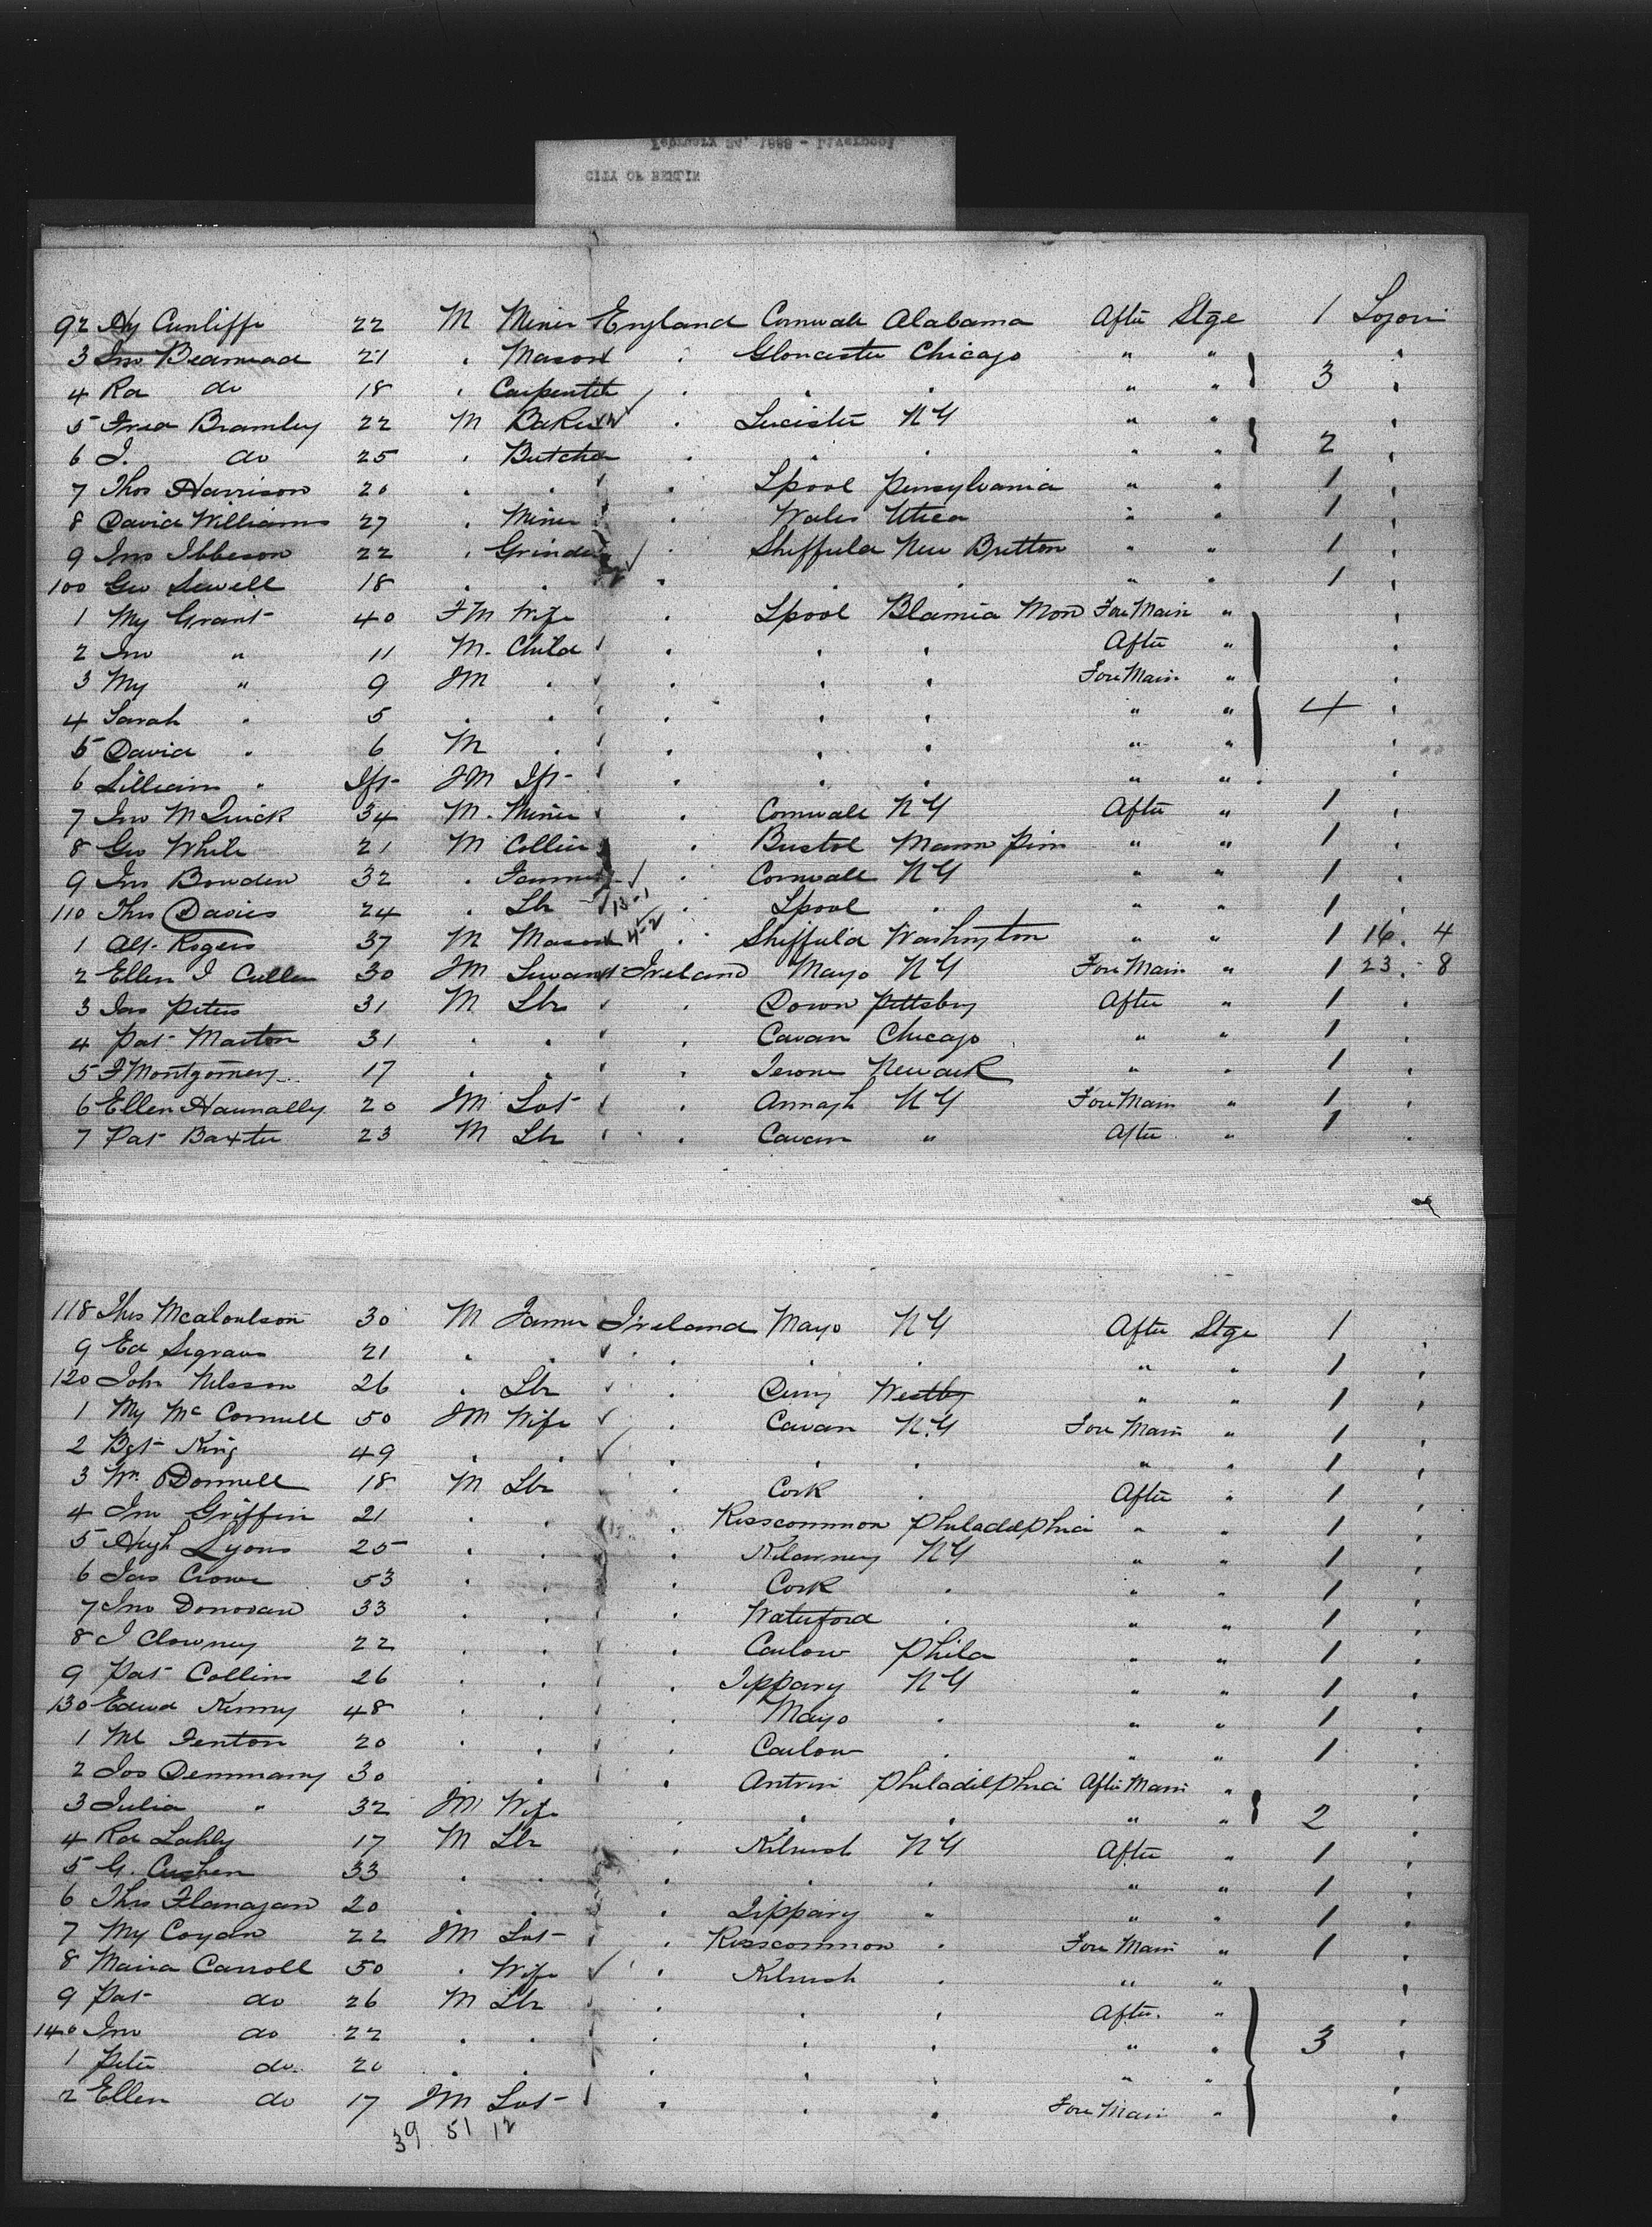 CITY OF BERLIN
92 Hy Cunliffe 22 M Miner England Cornwall Alabama After Stge 1 Sojon
3 Jno Beamead 21 . Mason . Gloucester Chicago " " 3
4 Rd do 18 . Carpenter . . . " "
5 Fred Bramley 22 M Baker . Leicister NY " " 2
6 J. do 25 . Butcher . . . " "
7 Thos Harrison 20 . . . Lpool Pensylvania " " 1
8 David Williams 27 . Miner . Wales Utica " " 1
9 Jno Ibbeson 22 . Grinder . Sheffield New Britton " " 1
100 Geo Sewell 18 . . . . . " " 1
1 My Grant 40 FM Wife . Lpool Blamia Mon Fore Main "
2 Jno " 11 M. Child . . . After "
3 My " 9 FM . . . . Fore Main "
4 Sarah . 5 . . . . . " " 4
5 David . 6 M . . . . " "
6 Lillian . Ift FM Ift . . . " "
7 Jno McQuick 34 M. Miner . Cornwall NY After " 1
8 Geo White 21 M Collier . Bristol Mann Pim " " 1
9 Jno Bowden 32 . Farmer . Cornwall NY " " 1
110 Thos Davies 24 . Lbr 13-1 . Lpool . " " 1
1 Alf. Rogers 37 M Mason 4-2 . Sheffield Washington " " 1 16. 4
2 Ellen J Cullen 30 FM Servant Ireland Mayo NY Fore Main " 1 23. - 8
3 Jas Peters 31 M Lbr . Down Pittsburg After " 1
4 Pat Marton 31 . . . Cavan Chicago " " 1
5 F Montgomery 17 . . . Terone Newark " " 1
6 Ellen Haunally 20 FM Svt . Armagh NY Fore Main " 1
7 Pat Baxter 23 M Lbr . Cavan " After " 1
118 Thos Mcaloulson 30 M Farmer Ireland Mayo NY After Stge 1
9 Ed Segrave 21 . . . . . " " 1
120 John Nelsson 26 . Lbr . Derry Westby " " 1
1 My McConnell 50 FM Wife . Cavan N.Y Fore Main " 1
2 Bgt King 49 . . . . . " " 1
3 Wm ODonnell 18 M Lbr . Cork . After " 1
4 Jno Griffin 21 . . . Rosscommon Philadelphia " " 1
5 Hugh Lyons 25 . . . Kilarney NY " " 1
6 Jas Crowe 53 . . . Cork . " " 1
7 Jno Donovan 33 . . . Waterford . " " 1
8 J Clowney 22 . . . Carlow Phila " " 1
9 Pat Collins 26 . . . Tippary NY " " 1
130 Edwd Kenny 48 . . . Mayo . " " 1
1 Ml Fenton 20 . . . Carlow . " " 1
2 Jos Demmany 30 . . . Antrim Philadelphia After Main " 2
3 Julia " 32 FM Wife . . . " "
4 Rd Lahly 17 M Lbr . Kilrush NY After " 1
5 G. Cushen 33 . . . . . " " 1
6 Thos Flanagan 20 . . . Tippary " " " 1
7 My Coyan 22 FM Svt . Rosscommon . Fore Main " 1
8 Maria Carroll 50 . Wife . Kilrush . " "
9 Pat do 26 M Lbr . . . After "
140 Jno do 22 . . . . . " " 3
1 Peter do 20 . . . . . " "
2 Ellen do 17 FM Svt . . . Fore Main "
39 51 12